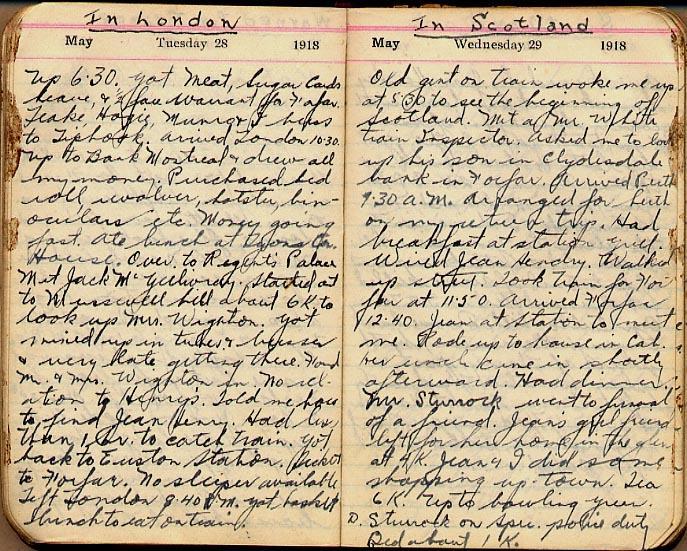 In London
May Tuesday 28 1918
Up 6:30. got Meat, Sugar Cards
leave, & ½ fare Warrant for Forfar.
Leake, Hogg, Munro & I buss
to Liphook. arrived London 10:30.
up to Bank Montreal & drew all
my money. Purchased bed
roll revolver, holster, bin-
oculars etc. Money going
fast. Ate lunch at Lyons Cor.
House. Over to Regents Palace
Met Jack Mc Started at
to Musswell hill about 6 K to
look up Mrs. Wighton. got
mixed up in tubes & busses
& very late getting there. Found
Mr. & Mrs. Wighton in. No rel-
ation to Henrys. Told me how
to find Jean Henry. Had less
than 1 hr. to catch train. Got
back to Euston Station. Ticket
to Forfar. No sleeper available
Left London 8:40 P.M. got basket
lunch to eat on train.
In Scotland
May Wednesday 29 1918
Old gent on train woke me up
at 5:30 to see the beginning of
Scotland. Met a Mr. White
train Inspector. Asked me to look
up his son in Clydesdale
bank in Forfar. Arrived Perth
9:30 A.M. Arranged for berth
on my return trip. Had
breakfast at station grill.
Wired Jean Hendry. Walked
up street. Took train for For
far at 11:50. Arrived Forfar
12:40. Jean at Station to meet
me. Rode up to house in Cab.
Her uncle came in shortly
afterward. Had dinner.
Mr. Sturrock went to funeral
of a friend. Jeans girl friend
left for her home in the glen
at 4 K. Jean & I did some
shopping up town. Tea
6 K. Up to bowling green.
D. Sturrock on Spec. police duty
Bed about 1 K.